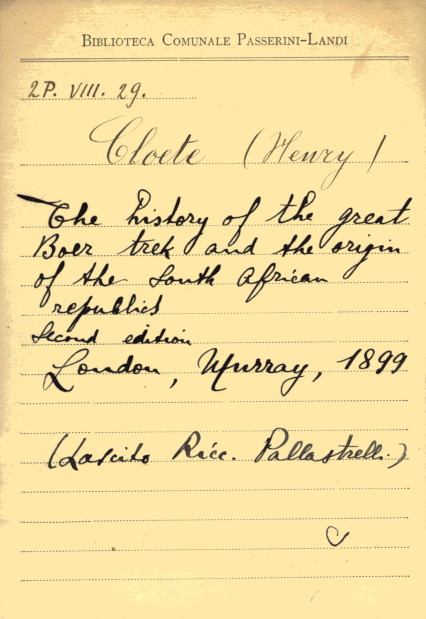 BIBLIOTECA COMUNALE PASSERINI-LANDI
2P. VIII. 29.
Cloete (Henry)
The history of the great
Boer trek and the origin
of the South African
republics
Second edition
London, Murray, 1899
(Lascito Ricc. Pallastrelli.)